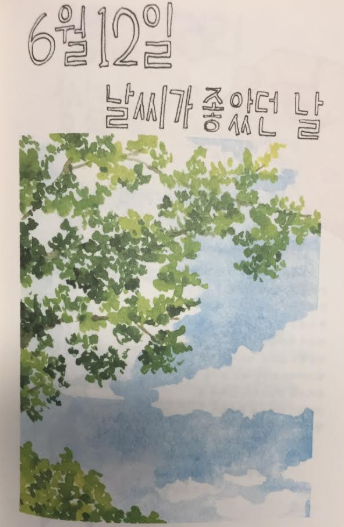 6월 12일
날씨가 좋았던 날